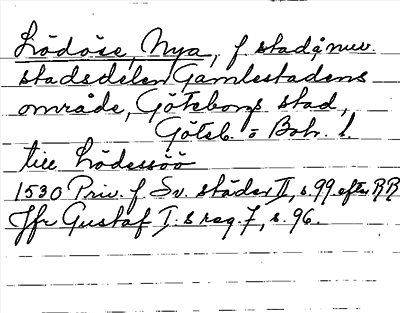 Lödöse, Nya, f. stad å nuv.
stadsdelen Gamlestadens
område, Göteborgs stad,
Göteb. o Boh. l.
till Lödessöö
1530 Priv. f Sv. städer II, s. 99 efter RR
Jfr Gustaf I:s reg. 7, s. 96.